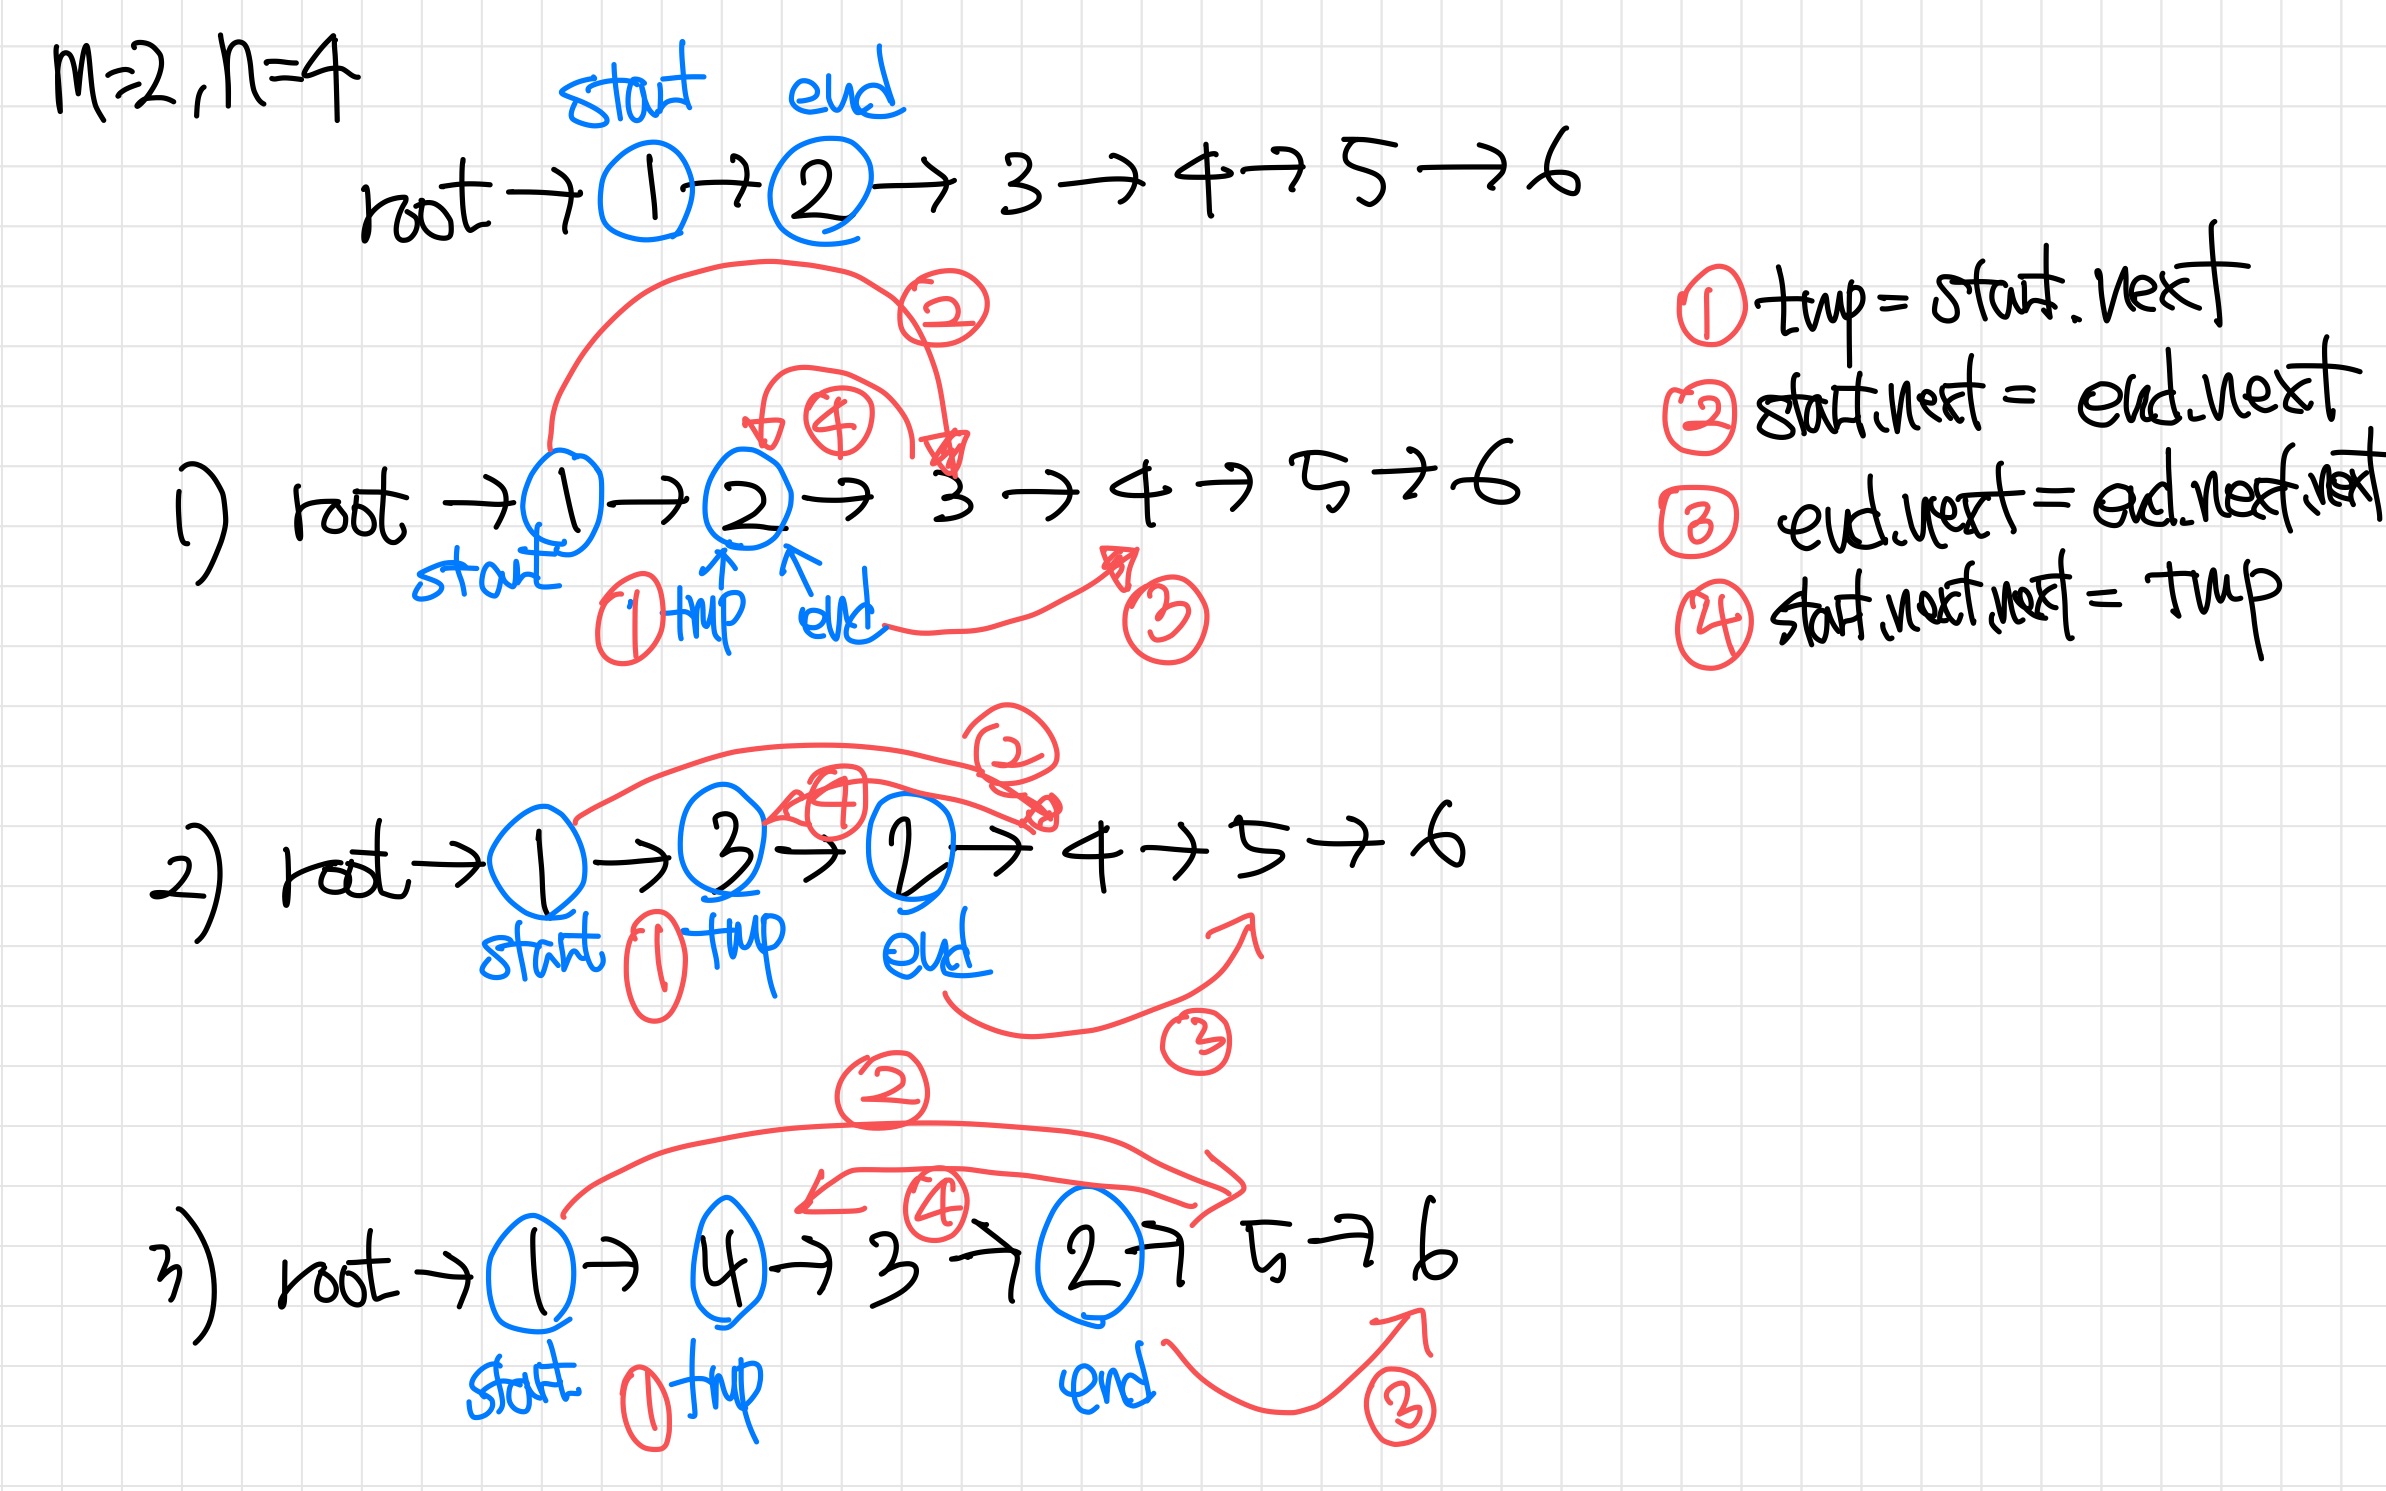 m=2, n=4
start end
root → 1 → 2 → 3 → 4 → 5 → 6
① tmp = start.next
② start.next = end.next
③ end.next = end.next.next
④ start.next.next = tmp
② ④
1) root → 1 → 2 → 3 → 4 → 5 → 6
start ① tmp end ③
② ④
2) root → 1 → 3 → 2 → 4 → 5 → 6
start ① tmp end
③
②
④
3) root → 1 → 4 → 3 → 2 → 5 → 6
start ① tmp end ③